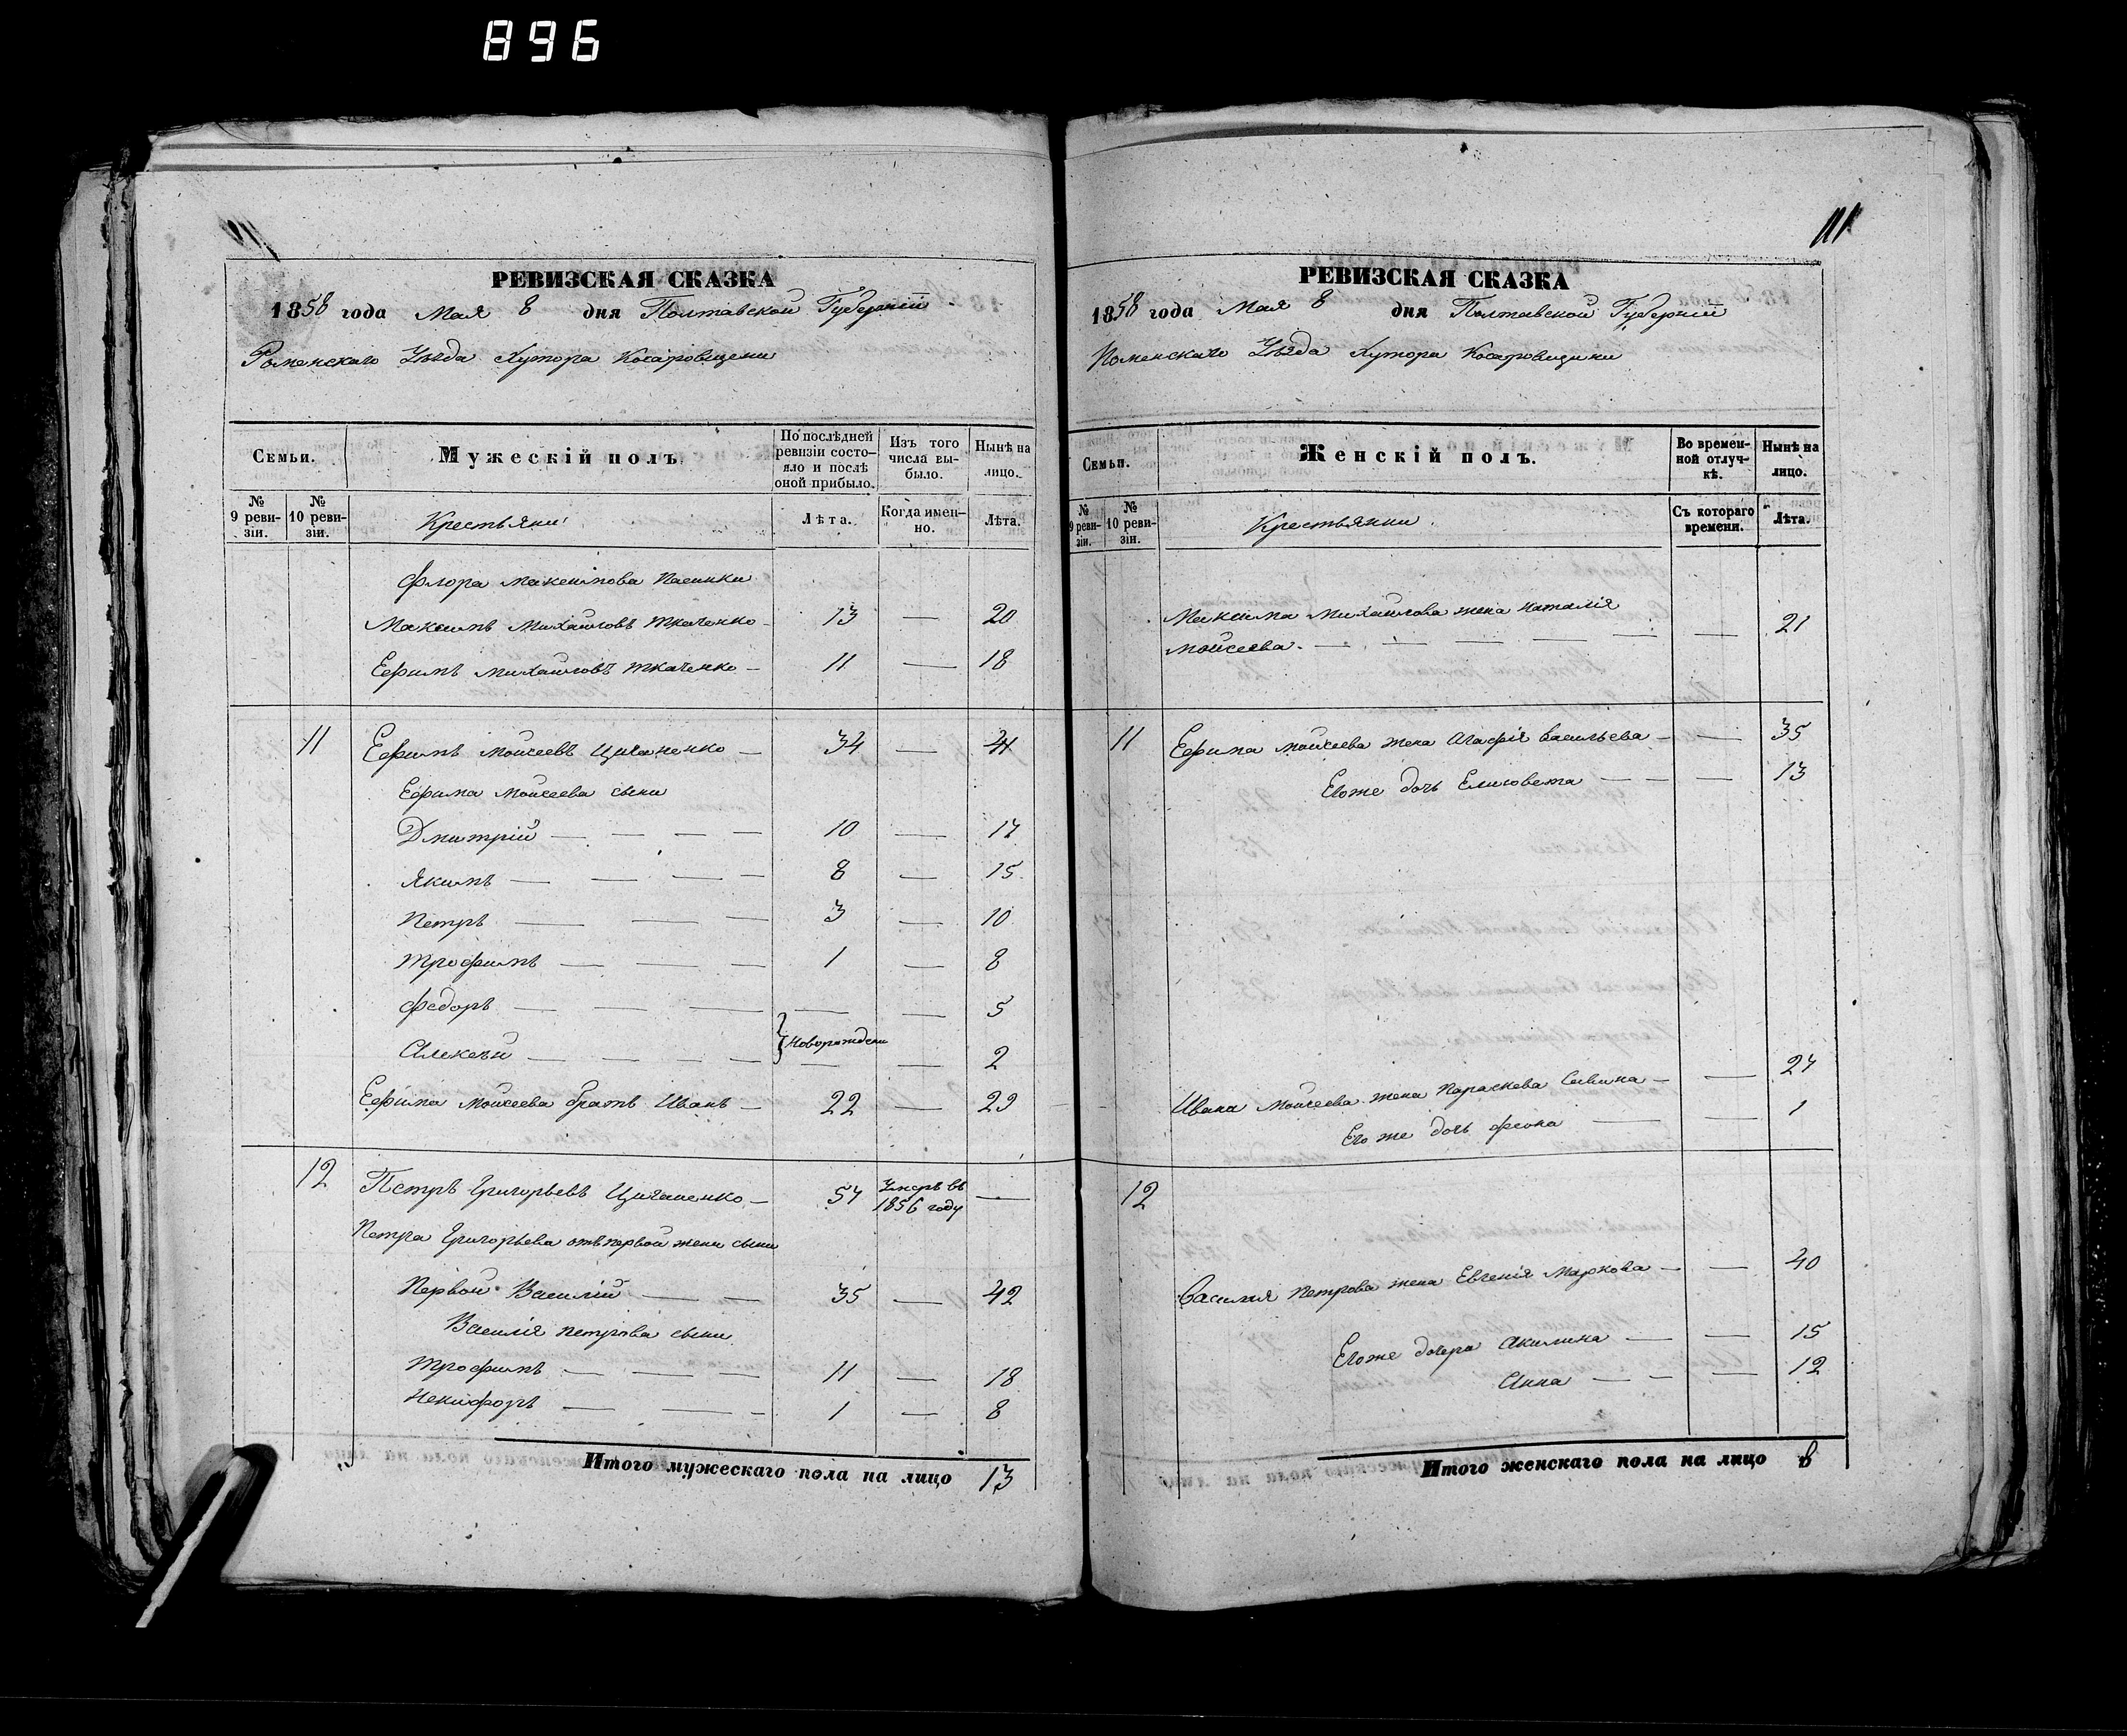 896
РЕВИЗСКАЯ СКАЗКА
1858 года Мая 8 дня Полтавской Губерніи
Роменскаго Уѣзда Хутора Косаровщени
Семьи. Мужескій полъ. По послѣдней ревизіи состояло и послѣ оной прибыло. Изъ того числа выбыло. Нынѣ на лицо.
№ 9 ревизіи. № 10 ревизіи. Крестьяни Лѣта. Когда именно. Лѣта.
Флора Максимова Пасинки
Максимъ Михайловъ Ткаченко — 13 — 20
Ефимъ Михайловъ Ткаченко — 11 — 18
11 Ефимъ Моисеевъ Циганенко — 34 — 41
Ефима Моисеева сыни
Дмитрій — 10 — 17
Якимъ — 8 — 15
Петръ — 3 — 10
Трофимъ — 1 — 8
Федоръ — — — 5
Новорождени
Алексѣй — — — 2
Ефима Моисеева братъ Иванъ — 22 — 29
12 Петръ Григорьевъ Циганенко — 57 Умеръ въ 1856 году —
Петра Григорьева отъ первой жени сыни
Первой Василій — 35 — 42
Василія Петрова сыни
Трофимъ — 11 — 18
Никифоръ — 1 — 8
Итого мужескаго пола на лицо 13
111
РЕВИЗСКАЯ СКАЗКА
1858 года Мая 8 дня Полтавской Губерніи
Роменскаго Уѣзда Хутора Косаровщини
Семьи. Женскій полъ. Во временной отлучкѣ. Нынѣ на лицо.
№ 9 ревизіи. № 10 ревизіи. Крестьянки Съ котораго времени. Лѣта.
Максима Михайлова жена Наталія
Моисеева — — 21
11 Ефима Моисеева жена Агафія Васильева — — 35
Его же дочь Елисовета — — 13
Ивана Моисеева жена Параскева Савина — — 27
Его же дочь Феона — — 1
12
Василия Петрова жена Евгенія Маркова — — 40
Его же дочера Акилина — — 15
Анна — — 12
Итого женскаго пола на лицо 8